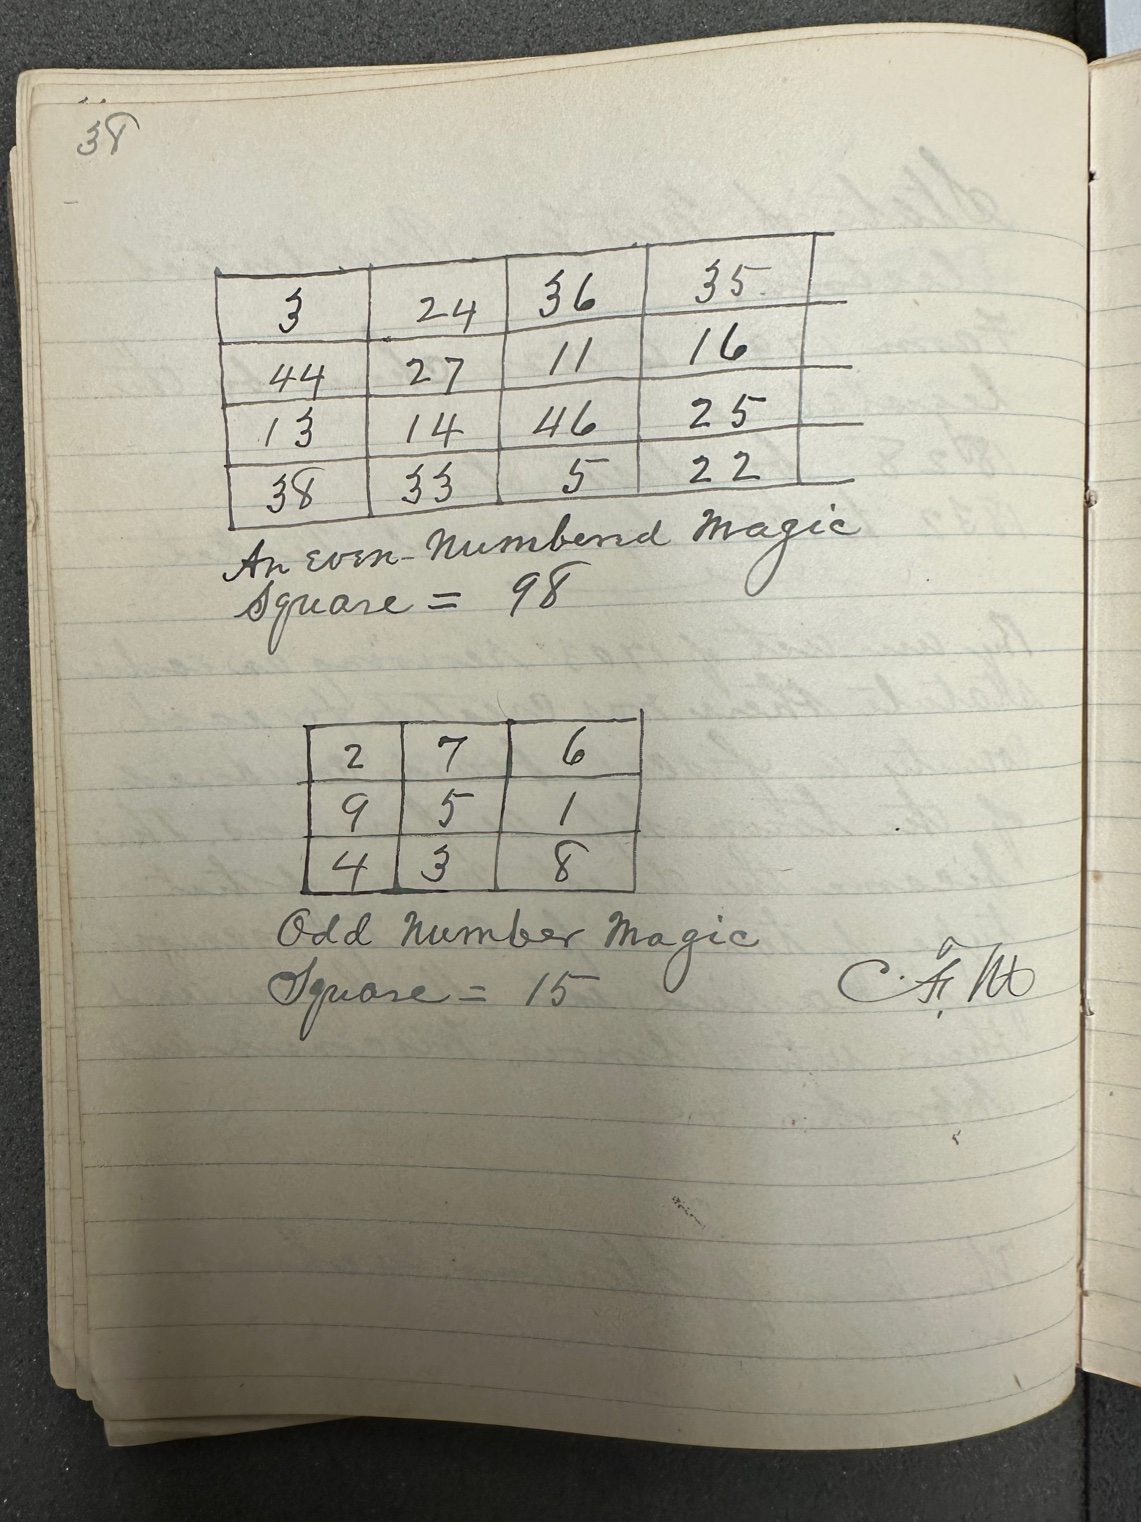 38
3 24 36 35
44 27 11 16
13 14 46 25
38 33 5 22
An Even-Numbered Magic
Square = 98
2 7 6
9 5 1
4 3 8
Odd Number Magic
Square = 15
C. F. M